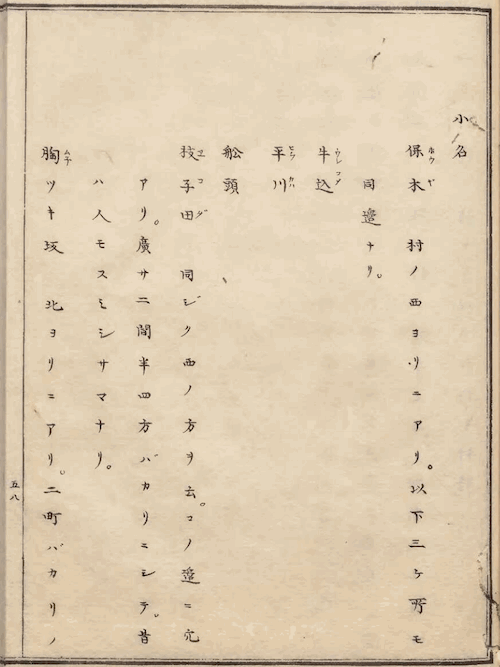 小名
保木 村ノ西ヨリニアリ。以下三ケ所モ
ホウヤ
同邉ナリ。
牛込
ウシコメ
平川
ヒラカハ
舩頭
枝子田 同ジク西ノ方ヲ云。コノ邉ニ穴
エコダ
アリ。廣サ二間半四方バカリニシテ。昔
ハ人モスミシサマナリ。
胸ツキ坂 北ヨリニアリ。二町バカリノ
ムナ
五八